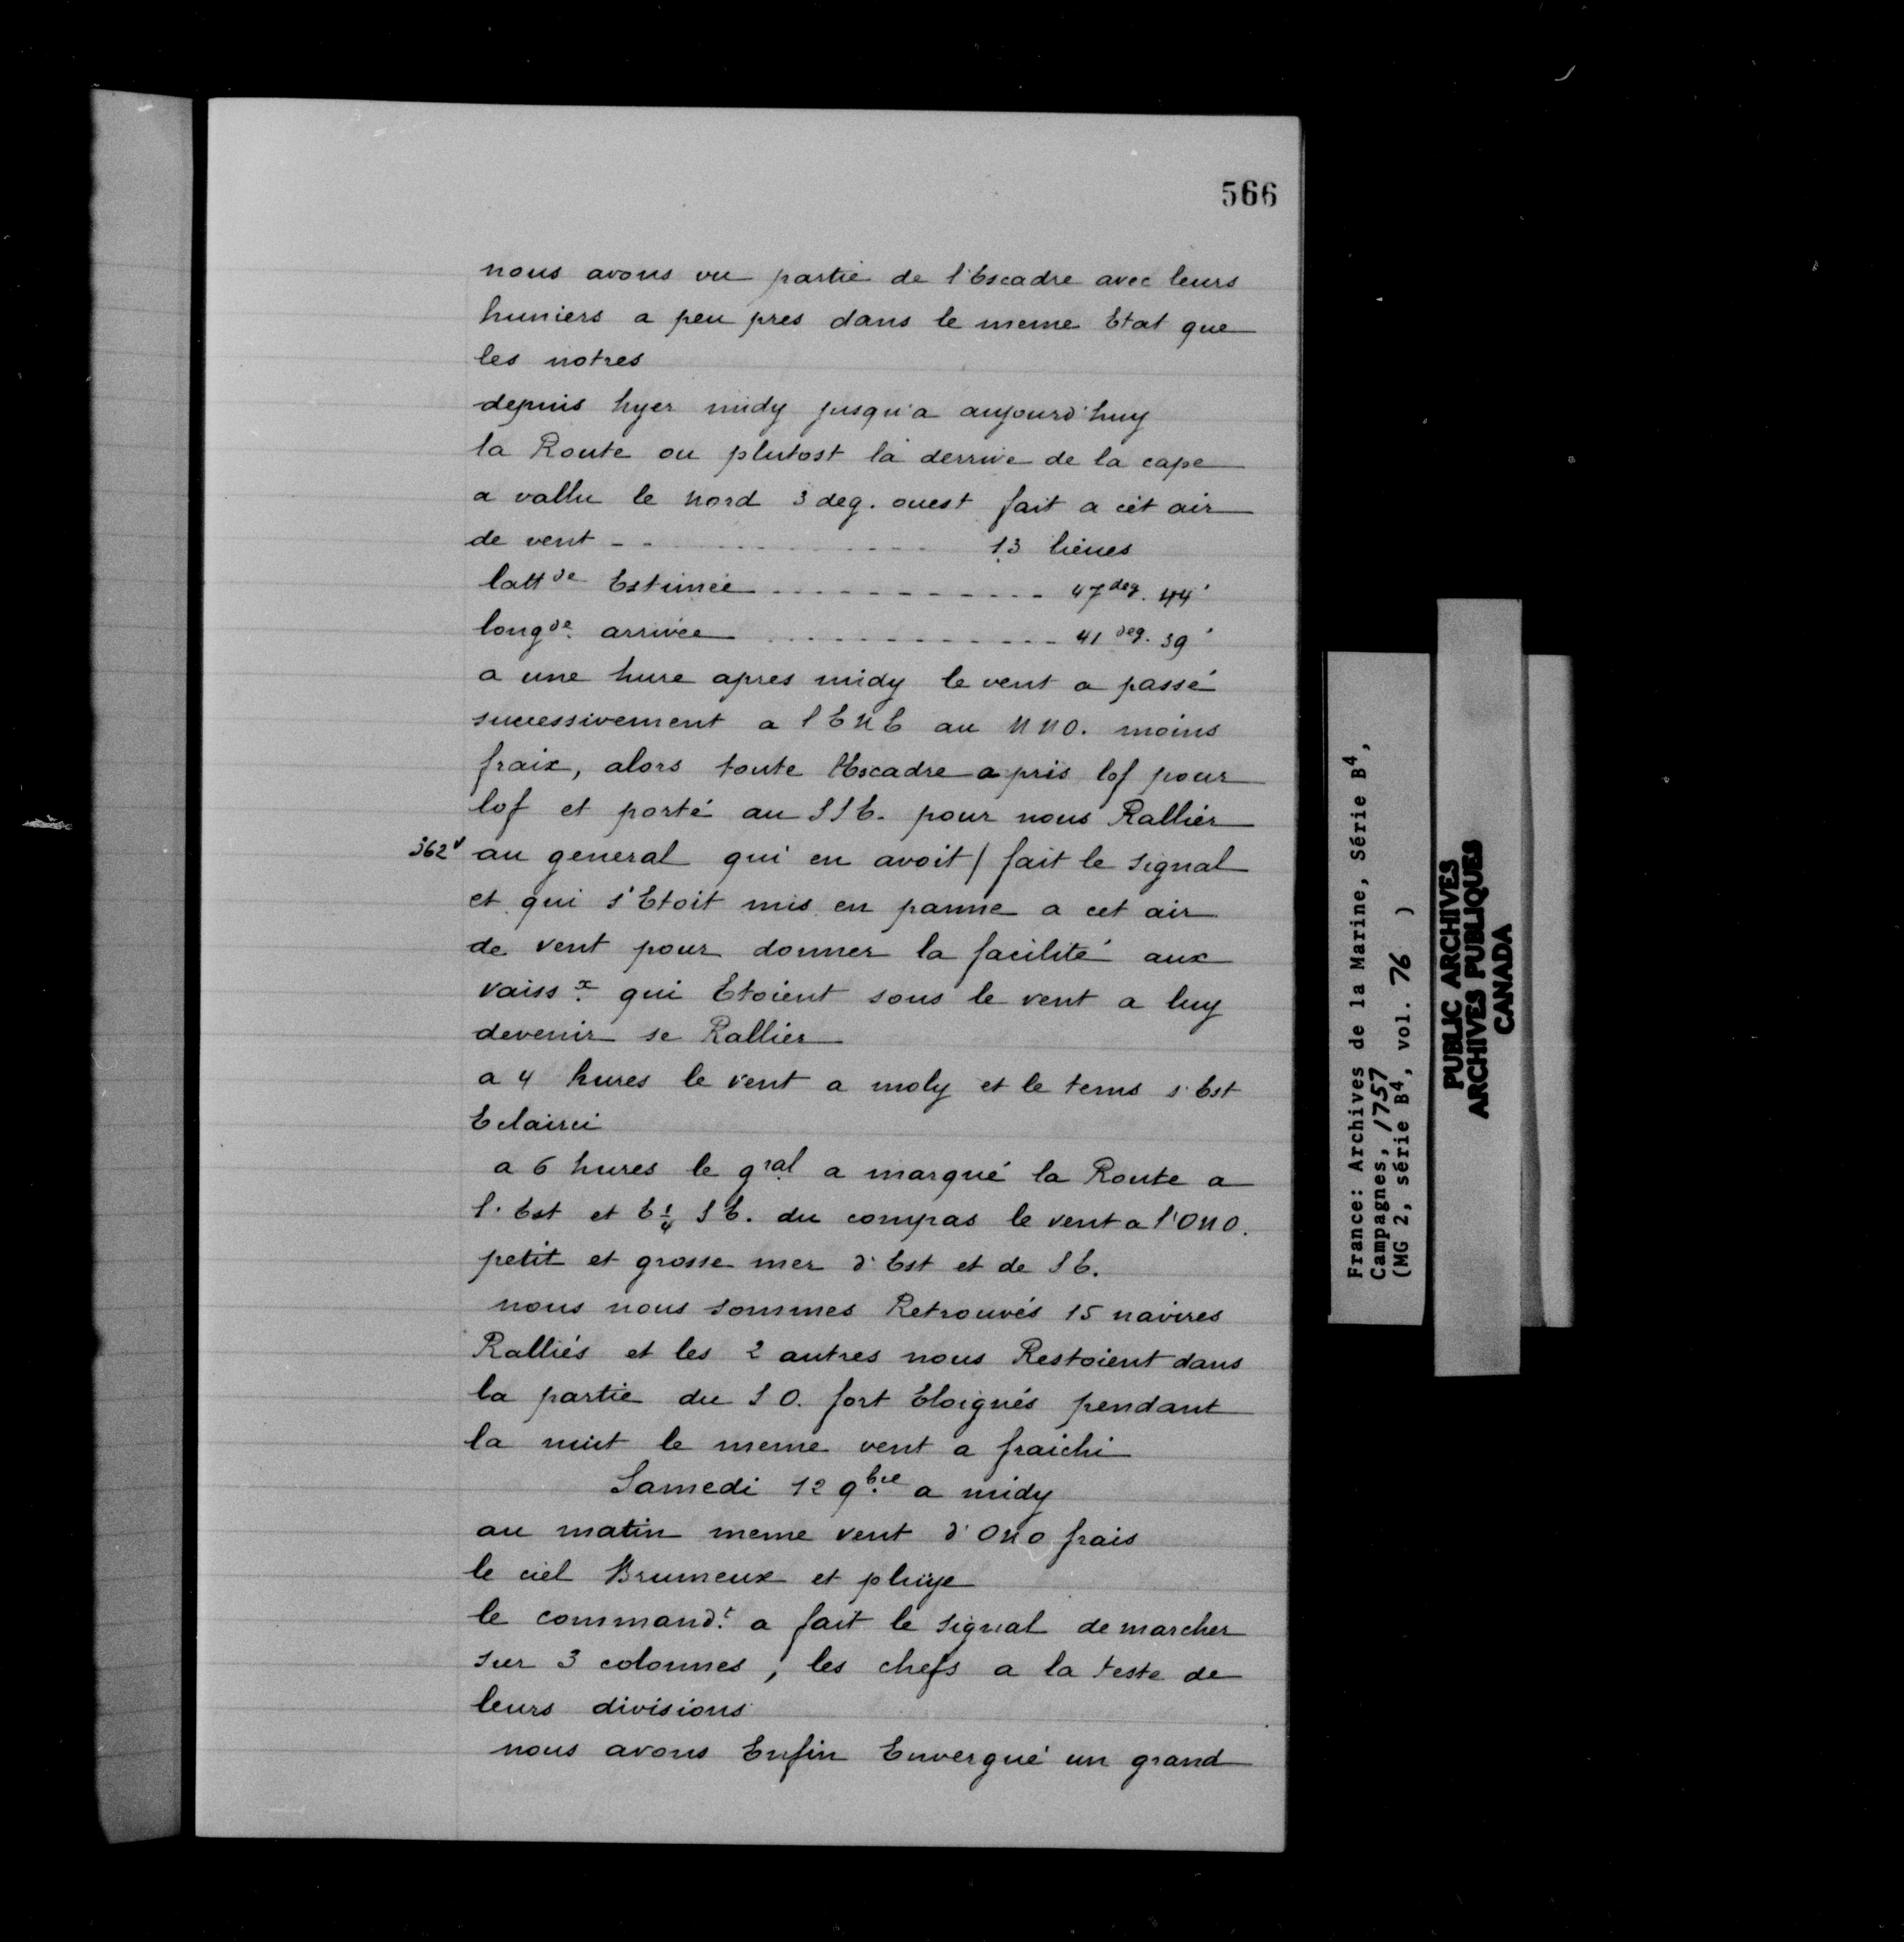 566
nous avons vu partie de l'Escadre avec leurs
huniers a peu pres dans le meme Etat que
les notres
depuis hyer midy jusqu'a aujourd'huy
la Route ou plutost la derrive de la cape
a vallu le nord 3 deg. ouest fait a cet air
de vent - - - - - - - - - - 13 lieues
lattde Estimée - - - - - - - - - - 47 deg. 44'
longde. arrivée - - - - - - - - - - 41 deg. 39'
a une hure apres midy le vent a passé
successivement a l'ENE au NNO. moins
fraix, alors toute l'Escadre a pris lof pour
lof et porté au SSE. pour nous Rallier
362v au general qui en avoit / fait le signal
et qui s'Etoit mis en panne a cet air
de vent pour donner la facilité aux
vaissx. qui Etoient sous le vent a luy
devenir se Rallier
a 4 hures le vent a moly et le tems s'Est
Eclairci
a 6 hures le gral. a marqué la Route a
l'Est et E 1/4 SE. du compas le vent a l'ONO.
petit et grosse mer d'Est et de SE.
nous nous sommes Retrouvés 15 navires
Ralliés et les 2 autres nous Restoient dans
la partie du SO. fort Eloignés pendant
la nuit le meme vent a fraichi
Samedi 12 9bre. a midy
au matin meme vent d'ONO frais
le ciel Brumeux et pluye
le commandt. a fait le signal de marcher
sur 3 colonnes, les chefs a la teste de
leurs divisions
nous avons Enfin Envergué un grand
France: Archives de la Marine, Série B4,
Campagnes, 1757
(MG 2, série B4, vol. 76 )
PUBLIC ARCHIVES
ARCHIVES PUBLIQUES
CANADA